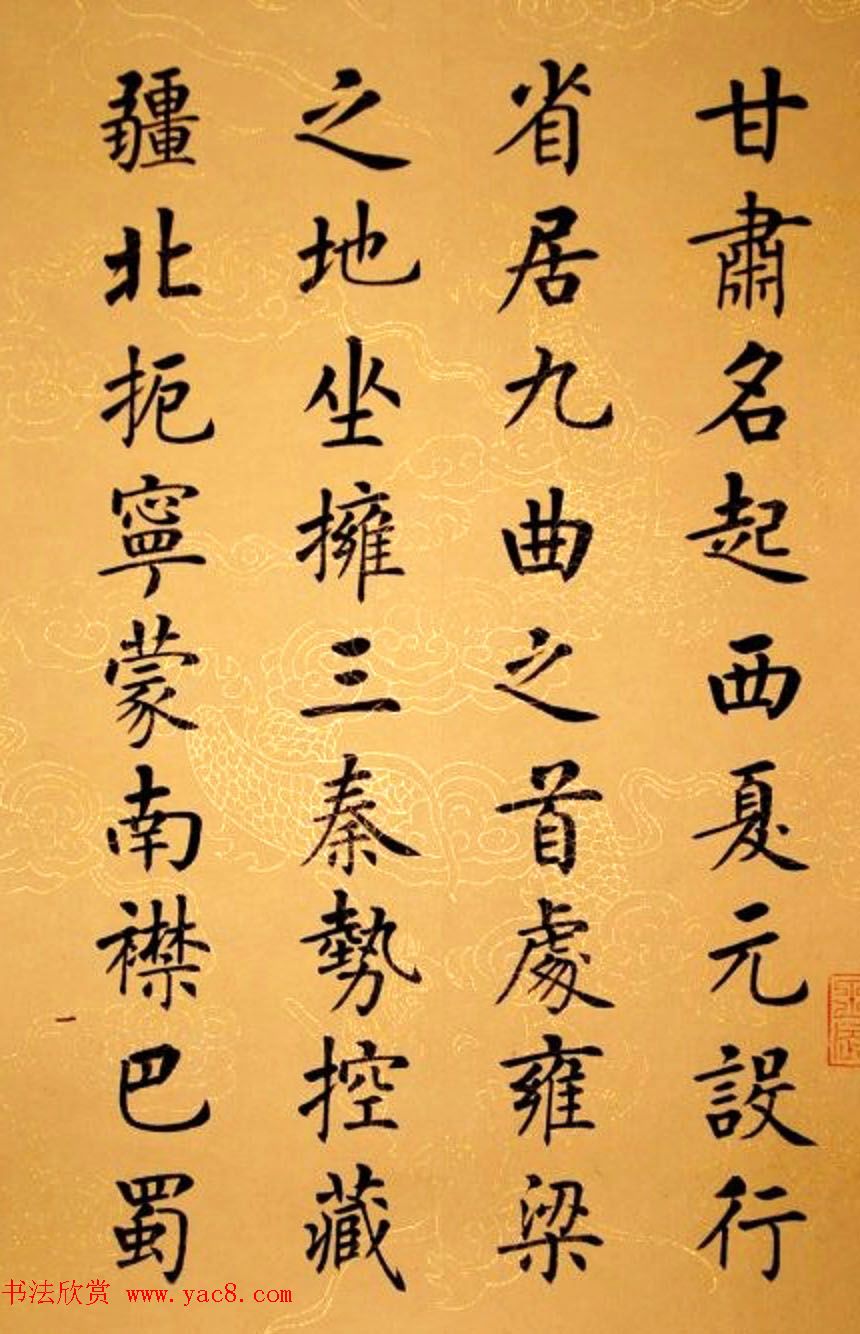 甘肅名起西夏元設行
省居九曲之首處雍梁
之地坐擁三秦勢控藏
疆北扼寧蒙南襟巴蜀
书法欣赏 www.yac8.com